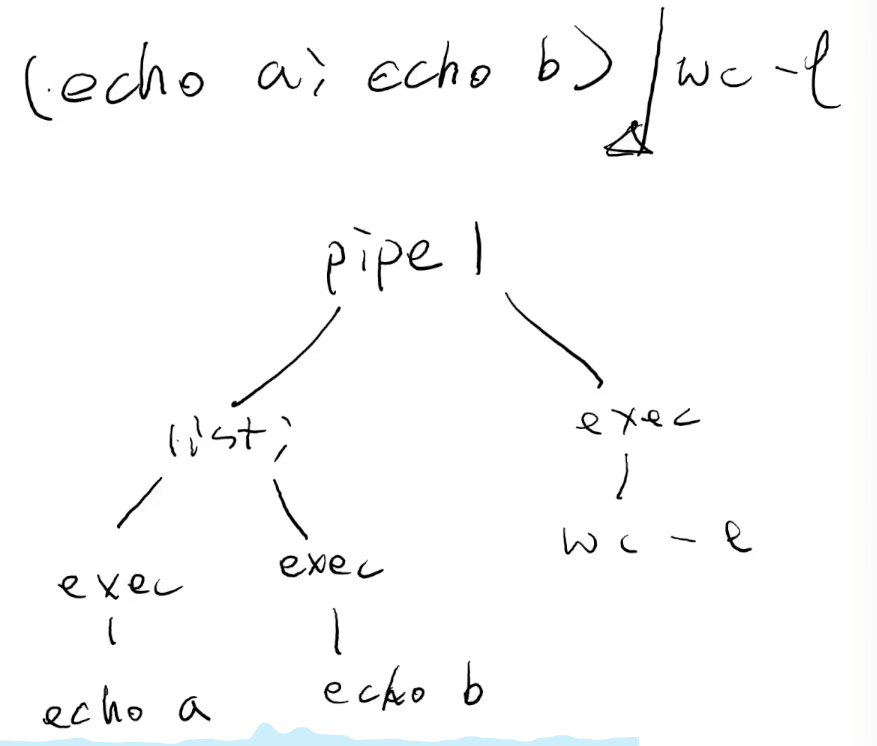 (echo a; echo b) | wc -l
pipe |
list;
exec
exec
exec
wc - l
echo a
echo b